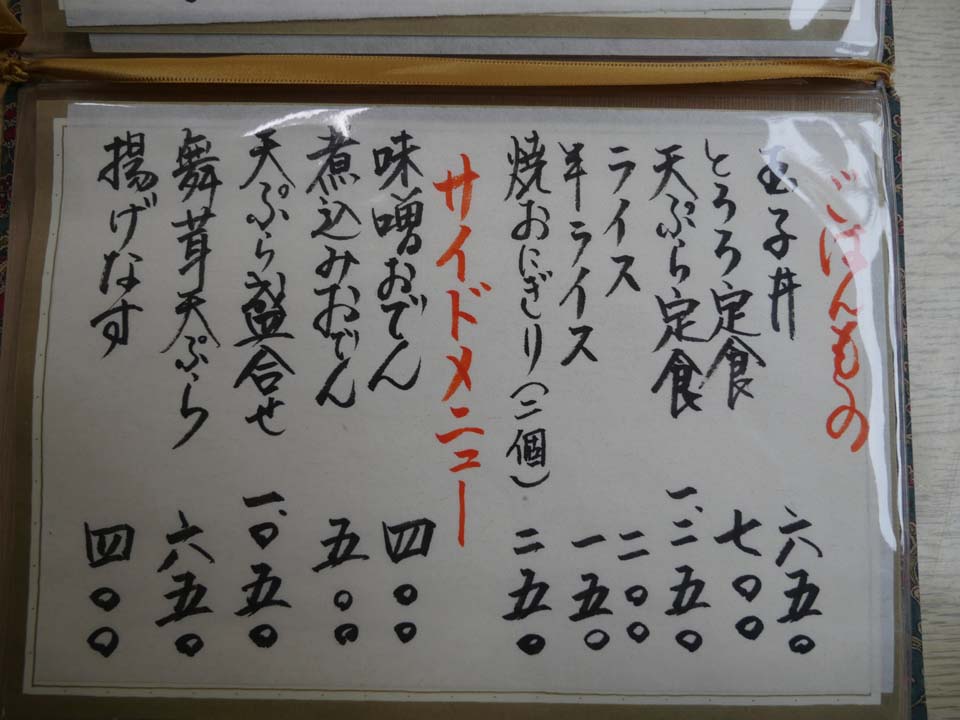 ごはんもの
玉子丼 六五〇
とろろ定食 七〇〇
天ぷら定食 一、一五〇
ライス 二〇〇
半ライス 一五〇
焼おにぎり(二個) 二五〇
サイドメニュー
味噌おでん 四〇〇
煮込みおでん 五〇〇
天ぷら盛合せ 一、〇五〇
舞茸天ぷら 六五〇
揚げなす 四〇〇